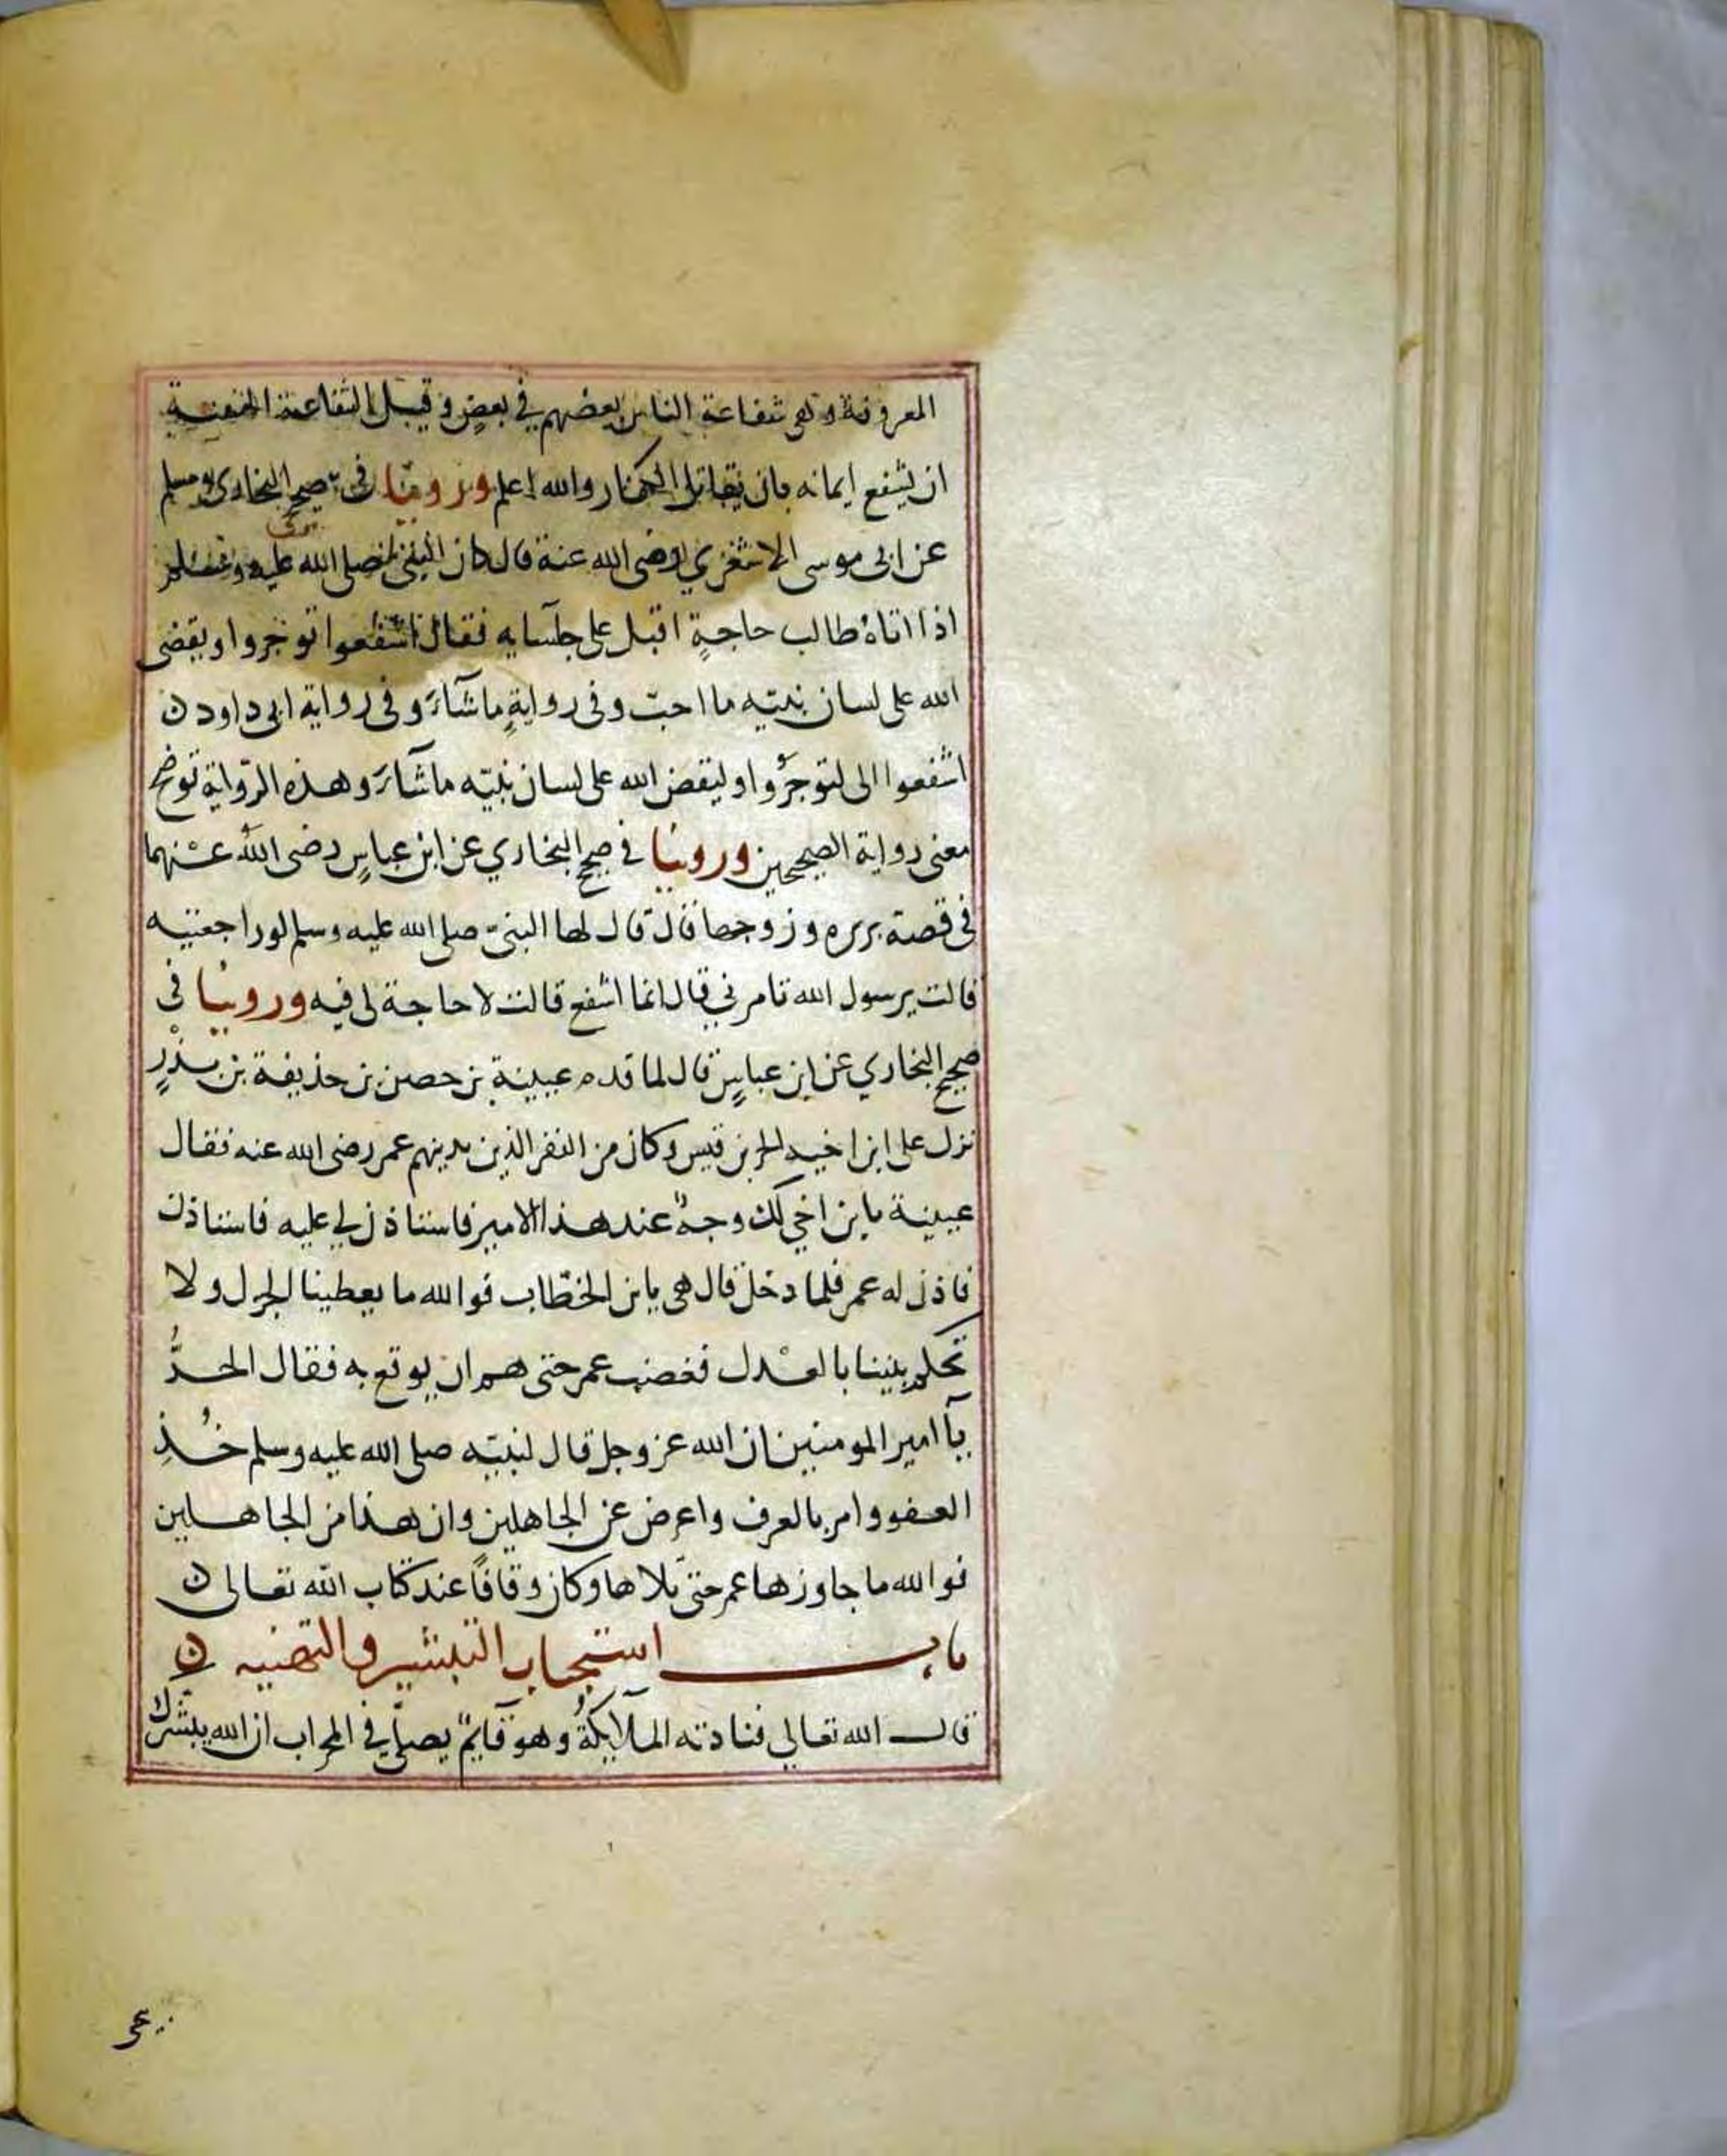 المعروفة وهى شفاعة الناس بعضهم في بعض وقيل الشفاعة الحسنة
ان يشفع ايمانه بان يقاتل الكفار والله اعلم وروينا فى صحيح البخارى ومسلم
عن ابى موسى الاشعري رضى الله عنه قال كان النبى صلى الله عليه وسلم
اذا اتاه طالب حاجةٍ اقبل على جلسايه فقال اشفعوا توجروا ويقضى
الله على لسان نبيّه ما احبّ وفى روايةٍ ماشآءَ وفى رواية ابى داود ن
اشفعوا الى لتوجرُوا وليقض الله على لسان نبيّه ماشآءَ وهذه الرّواية توضح
معنى رواية الصحيحين وروينا في صحيح البخاري عن ابن عباسٍ رضى اللهُ عنهما
فى قصة بريره وزوجها قال قال لها النبىّ صلى الله عليه وسلم لو راجعتيه
قالت يرسول الله تامرني قال انما اشفع قالت لا حاجة لى فيه وروينا فى
صحيح البخاري عن ابن عباسٍ قال لما قدم عيينة بن حصن بن حذيفة بن بدْرٍ
نزل على ابن اخيه الحر بن قيس وكان من النفر الذين يدينهم عمر رضى الله عنه فقال
عيينة يابن اخي لك وجهٌ عند هذا الامير فاستاذن لي عليه فاستاذن
فاذن له عمر فلما دخل قال هى يابن الخطّاب فوالله ما يعطينا الجزل ولا
تحكم بيننا بالعدل فغضب عمر حتى هم ان يوقع به فقال الحرُّ
يآ امير المومنين ان الله عز وجل قال لنبيّه صلى الله عليه وسلم خُذِ
العفو وامر بالعرف واعرض عن الجاهلين وان هذا من الجاهلين
فوالله ما جاوزها عمر حتى تلاها وكان وقافاً عند كتاب الله تعالى ن
باب استحباب التبشير والتهنيه ن
قال الله تعالى فنادته الملآيكةُ وهو قآيمٌ يصلّي في المحراب ان الله يبشّرك